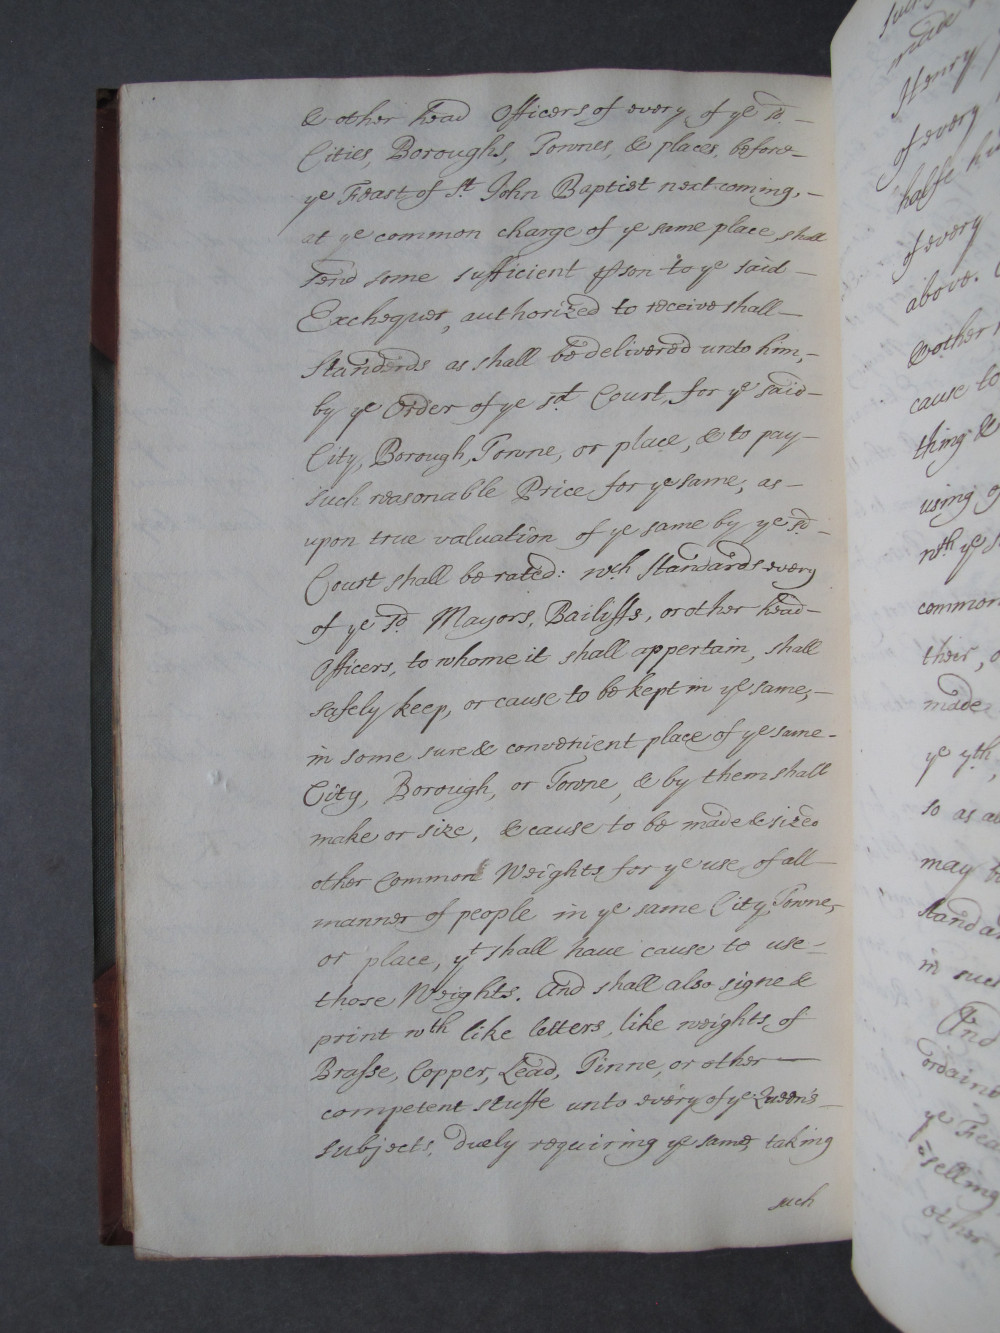 & other head Officers of every of ye sd
Cities, Boroughs, Townes, & places, before
ye Feast of St. John Baptist next coming,
at ye common charge of ye same place, shall
send some sufficient pson to ye said
Exchequer, authorized to receive shall
Standerds as shall be delivered unto him,
by ye Order of ye sd Court, for ye said
City, Borough, Towne, or place, & to pay
such reasonable Price for ye same, as
upon true valuation of ye same by ye sd
Court shall be rated: wch Standards every
of ye sd. Mayors, Bailiffs, or other head
Officers, to whome it shall appertain, shall
safely keep, or cause to be kept in ye same,
in some sure & convenient place of ye same
City, Borough, or Towne, & by them shall
make or size, & cause to be made & sized
other Common Weights for ye use of all
manner of people in ye same City, Towne,
or place, yt shall have cause to use
those Weights. And shall also signe &
print wth like letters, like weights of
Brasse, Copper, Lead, Tinne, or other
competent stuffe unto every of ye Queen's
subjects, duely requiring ye same, taking
such
made
Henry
of every
halfe
of every
above.
& other
cause to
thing &
using of
wth ye
common
their, o
made
ye yth,
so as
may be
Standar
in such
And
ordaine
ye Fea
selling
other